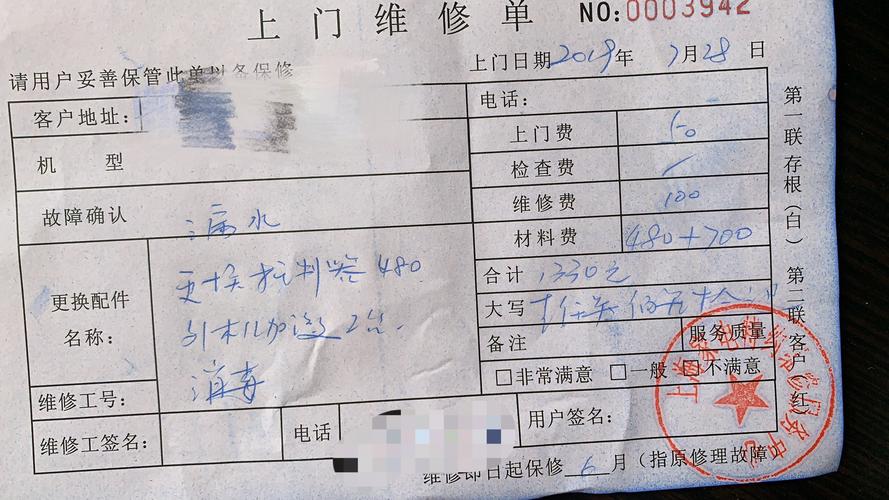 上门维修单 NO:0003942
请用户妥善保管此单以备保修 上门日期2019年7月28日
客户地址: 电话:
上门费 50
机 型 检查费 /
故障确认 漏水 维修费 100
材料费 480+700
更换配件名称: 更换 480 合计 1330元
外机加液2公 大写
消毒 备注 服务质量
□非常满意 □一般 □不满意
维修工号:
维修工签名: 电话 用户签名:
维修即日起保修 6 月(指原修理故障
第一联存根(白) 第二联客户(红)